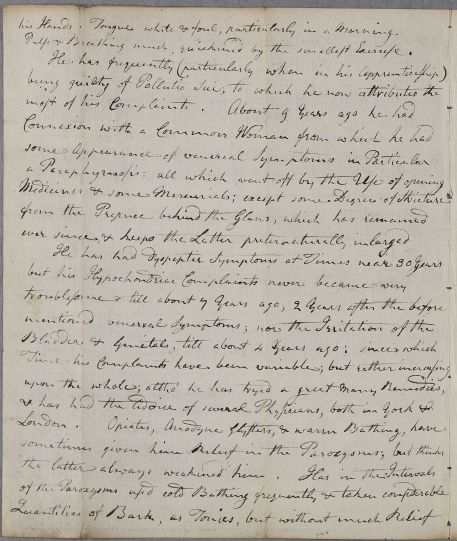 his Hands. Tongue white & foul, particularly in a Morning.
Pulse & Breathing much quickened by the smallest Exercise.
He has frequently (particularly when in his apprenticeship)
being guilty of Pollutio Sui, to which he now attributes the
most of his Complaints. About 9 Years ago he had
Connexion with a Common Woman from which he had
some appearance of venereal Symptoms in Particular
a Paraphymosis: all which went off by the Use of opening
Medicines & some Mercurials; except some Degree of Stricture
from the Prepuce behind the Glans, which has remained
ever since & keeps the Latter preternaturally inlarged
He has had Dyspeptic Symptoms at Times near 30 Years
but his Hypochondriac Complaints never became very
troublesome till about 7 Years ago, 2 Years after the before
mentioned venereal Symptoms; nor the Irritation of the
Bladder & Genitals, till about 4 Years ago; since which
Time his Complaints have been variable, but rather increasing
upon the whole; altho' he has tryed a great Many Remedies,
& has had the advice of several Physicians, both in York &
London. Opiates, Anodyne Clysters, & warm Bathing, have
sometimes given him Relief in the Paroxysms; but thinks
the latter always weakened him. Has in the Intervals
of the Paroxysms used cold Bathing frequently & taken considerable
Quantities of Bark, as Tonics, but without much Relief